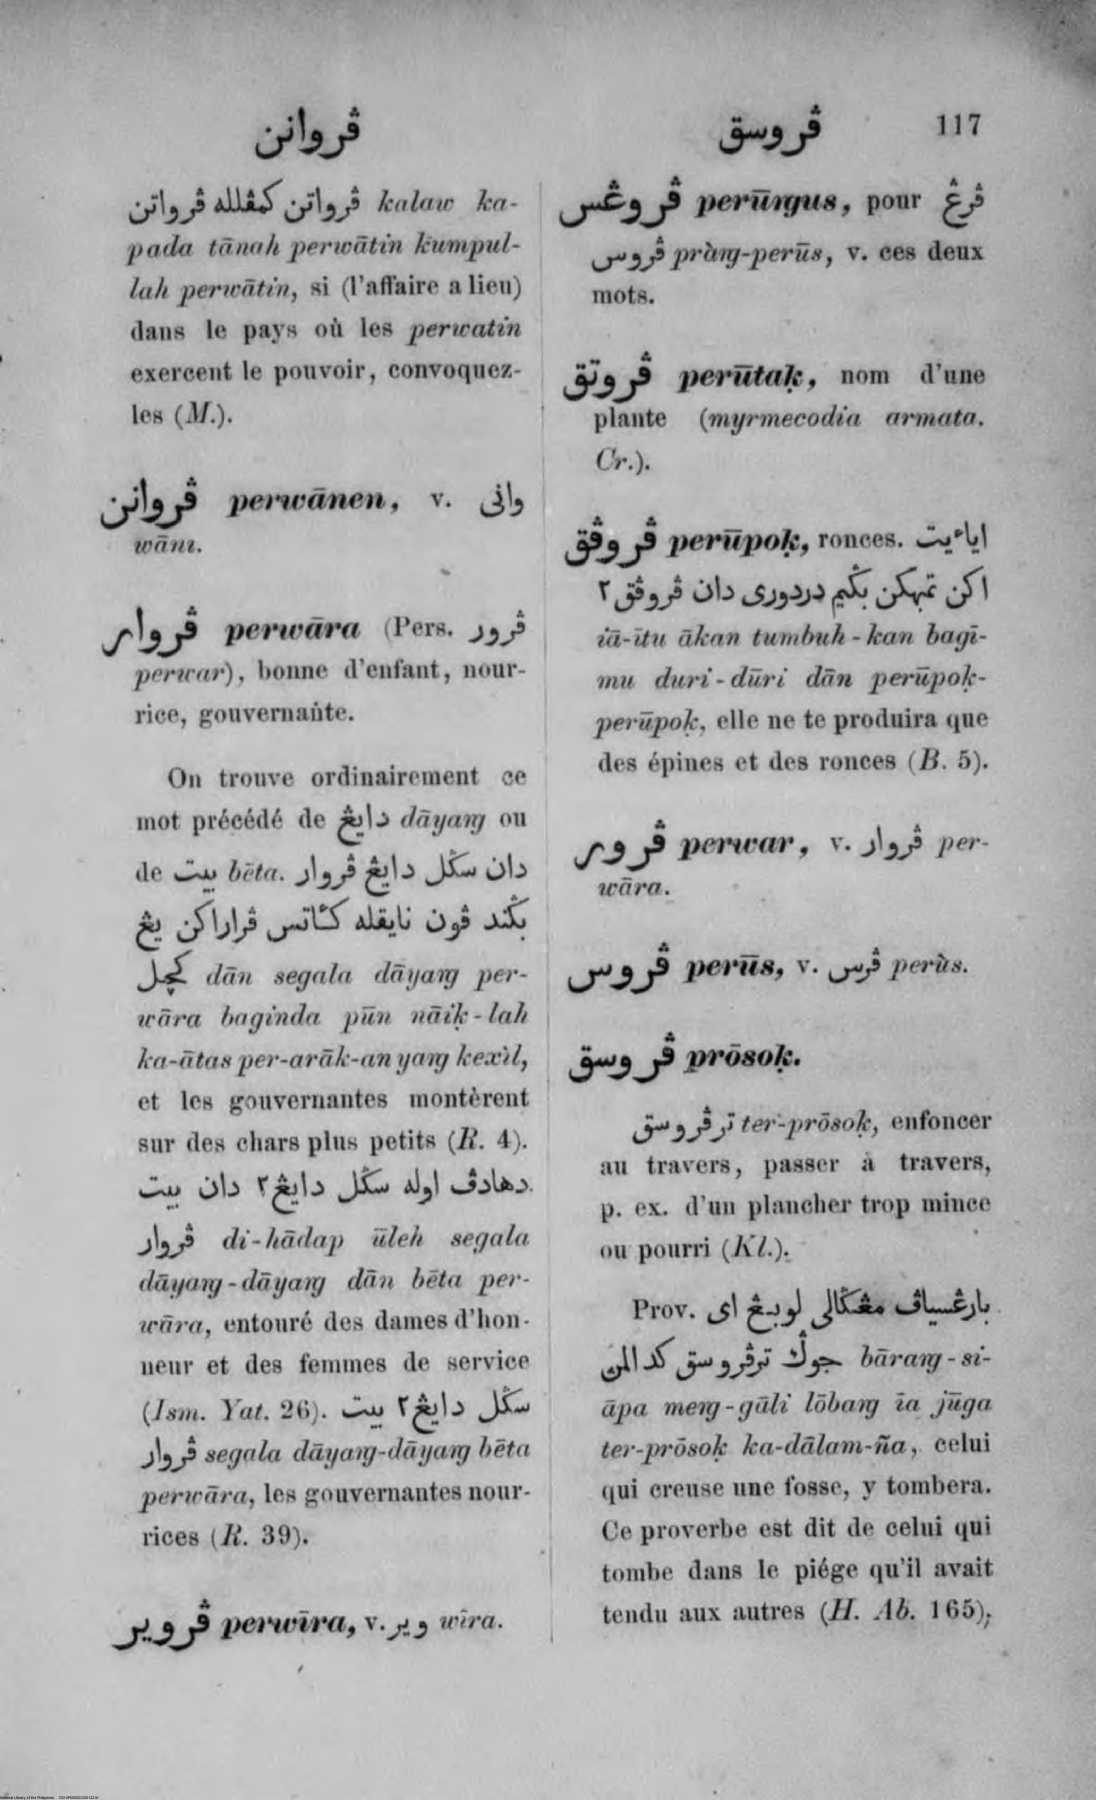 ڤروانن
ڤروسق 117
ڤرواتن كمڤلله ڤرواتن kalaw ka-
pada tānah perwātin kumpul-
lah perwātin, si (l'affaire a lieu)
dans le pays où les perwatin
exercent le pouvoir, convoquez-
les (M.).
ڤروانن perwānen, v. وانى
wānı.
ڤروار perwāra (Pers. ڤرور
perwar), bonne d'enfant, nour-
rice, gouvernante.
On trouve ordinairement ce
mot précédé de دايڠ dāyaŋg ou
de بيت bēta. دان سڬل دايڠ ڤروار
بڬند ڤون نايقله كئاتس ڤراراكن يڠ
كچل dān segala dāyaŋg per-
wāra baginda pūn nāiḳ-lah
ka-ātas per-arāk-an yaŋg kexìl,
et les gouvernantes montèrent
sur des chars plus petits (R. 4).
دهادڤ اوله سڬل دايڠ٢ دان بيت
ڤروار di-hādap ūleh segala
dāyaŋg-dāyaŋg dān bēta per-
wāra, entouré des dames d'hon-
neur et des femmes de service
(Ism. Yat. 26). سڬل دايڠ٢ بيت
ڤروار segala dāyaŋg-dāyaŋg bēta
perwāra, les gouvernantes nour-
rices (R. 39).
ڤروير perwīra, v. وير wīra.
ڤروڠس perūŋgus, pour ڤرڠ
ڤروس pràŋg-perūs, v. ces deux
mots.
ڤروتق perūtaḳ, nom d'une
plante (myrmecodia armata.
Cr.).
ڤروڤق perūpoḳ, ronces. اياءيت
اكن تمبهكن بڬيم دردورى دان ڤروڤق٢
iā-ītu ākan tumbuh-kan bagī-
mu duri-dūri dān perūpoḳ-
perūpoḳ, elle ne te produira que
des épines et des ronces (B. 5).
ڤرور perwar, v. ڤروار per-
wāra.
ڤروس perūs, v. ڤرس perùs.
ڤروسق prōsoḳ.
ترڤروسق ter-prōsoḳ, enfoncer
au travers, passer à travers,
p. ex. d'un plancher trop mince
ou pourri (Kl.).
Prov. بارڠسياڤ مڠڬالى لوبڠ اى
جوڬ ترڤروسق كدالمن bāraŋg-si-
āpa meŋg-gāli lōbaŋg īa jūga
ter-prōsoḳ ka-dālam-ña, celui
qui creuse une fosse, y tombera.
Ce proverbe est dit de celui qui
tombe dans le piége qu'il avait
tendu aux autres (H. Ab. 165).